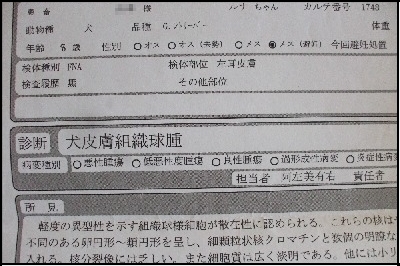 様 ルリ ちゃん カルテ番号 1748
動物種 犬 品種 G.レトリーバー 体重
年齢 8 歳 性別 ○オス ○オス(去勢) ○メス ●メス(避妊) 今回避妊処置
検体種別 FNA 検体部位 左耳皮膚
検査履歴 無 その他部位
診断 犬皮膚組織球腫
病変種別 ○悪性腫瘍 ○低悪性度腫瘍 ○良性腫瘍 ○過形成性病変 ○炎症性病変
担当者 阿左美有右 責任者
所見
軽度の異型性を示す組織球様細胞が散在性に認められる。これらの核は
不同のある卵円形～類円形を呈し、細顆粒状核クロマチンと数個の明瞭な
入れる。核分裂像には乏しい。また細胞質は広く淡明である。他には小リ